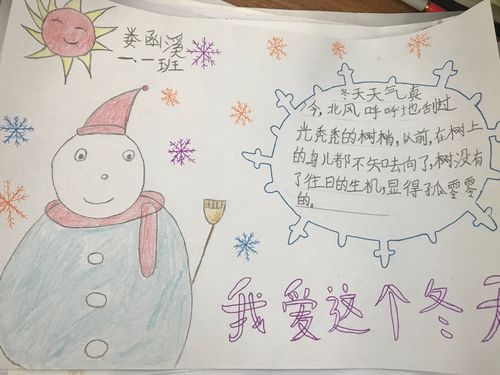 娄函溪
一、一班
冬天天气真
冷,北风呼呼地刮过
光秃秃的树梢,以前,在树上
的鸟儿都不知去向了,树没有
了往日的生机,显得孤零零
的。
我爱这个冬天